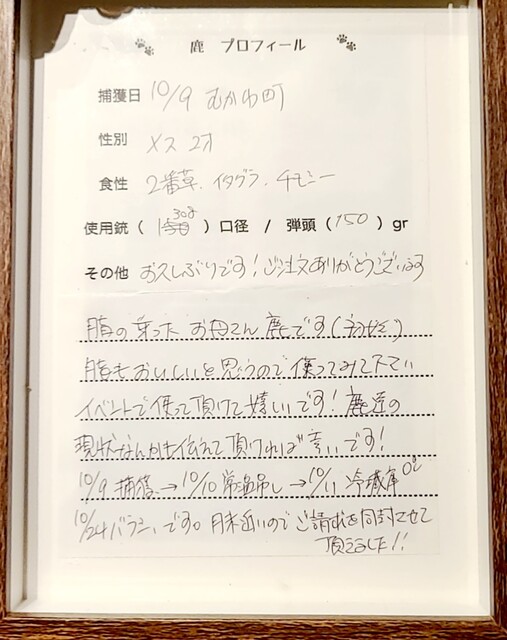 鹿 プロフィール
捕獲日 10/9 むかわ町
性別 メス 2才
食性 2番草. イタグラ. チモシー
使用銃( 308 )口径 / 弾頭( 150 ) gr
その他 お久しぶりです!ご注文ありがとうございます
脂の乗った お母さん 鹿です(
脂もおいしいと思うので 使ってみて下さい
イベントで使って頂けて嬉しいです! 鹿達の
現状なんかも伝えて頂ければ幸いです!
10/9 捕獲 → 10/10 常温吊し → 10/11 冷蔵庫 0℃
10/24 バラシ です。月末近いので ご請求を同封させて
頂きました!!